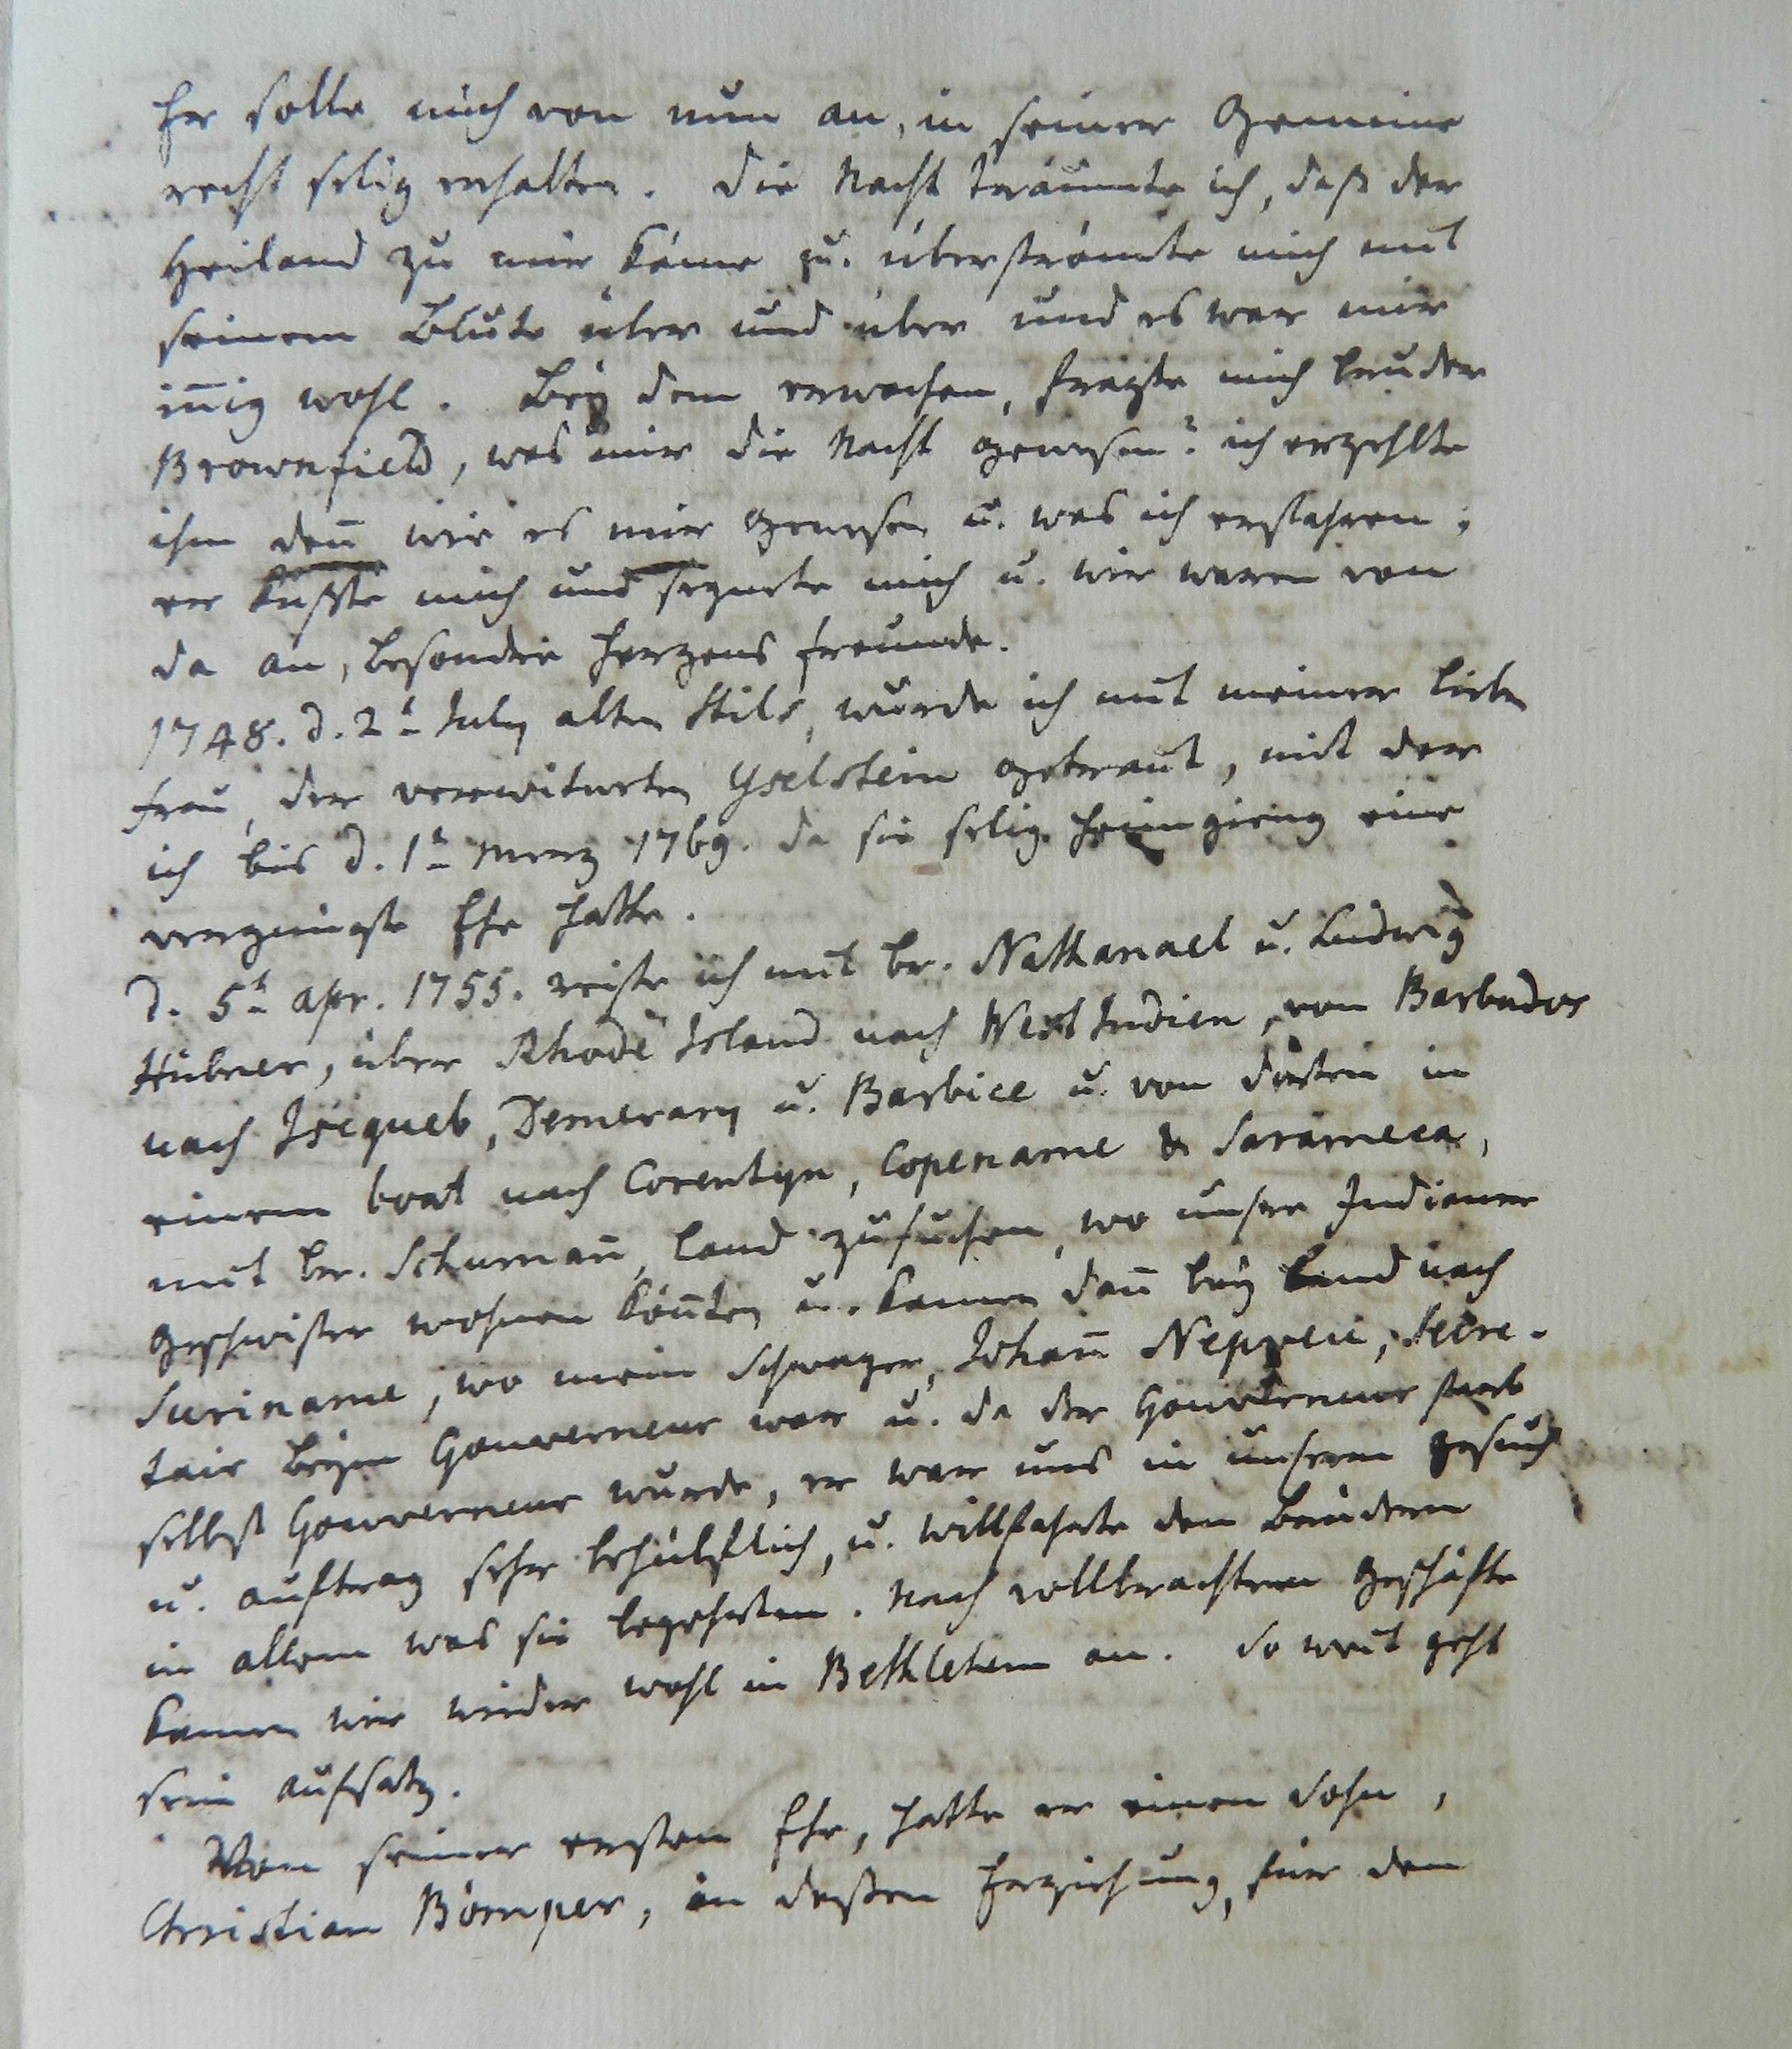 Er solle mich von nun an, in seiner Gemeine
recht selig erhalten. Die Nacht träumte ich, daß der
Heiland zu mir käme u. überströmte mich mit
seinem Blute über und über und es war mir
iñig wohl. Bey dem erwachen, fragte mich bruder
Brownfield, was mir die Nacht gewesen? ich erzehlte
ihm deñ wie es mir gewesen u. was ich erfahren;
er küßte mich und segnete mich u. wir waren von
da an, besondre Herzens freunde.
1748. d. 2t July alten Stils, wurde ich mit meiner lieben
frau, der verwitweten Yselstein getraut, mit der
ich bis d. 1t Merz 1769. da sie selig heimgieng eine
vergnügte Ehe hatte.
d. 5t apr. 1755. reiste ich mit br. Nathanael u. Ludwig
Hübner, über Rhode Island nach West Indien, von Barbados
nach Isequeb, Demerary u. Barbice u. von dorten in
einem boat nach Corentyn, Copename & Sarameca,
mit br. Schumañ, Land zu suchen, wo unsre Indianer
Geschwister wohnen köñten u. kamen dañ bey Land nach
Suriname, wo mein Schwager, Johañ Nepveu, Secre-
tair beym Gouverneur war u. da der Gouverneur starb
selbst Gouverneur wurde, er war uns in unserm gesuch
u. auftrag sehr behülflich, u. willfahrte den Brüdern
in allem was sie begehrten. Nach vollbrachtem Geschäfte
kamen wir wieder wohl in Bethlehem an. So weit geht
sein aufsatz.
Von seiner ersten Ehe, hatte er einen Sohn,
Christian Bömper, an deßen Erziehung, für den